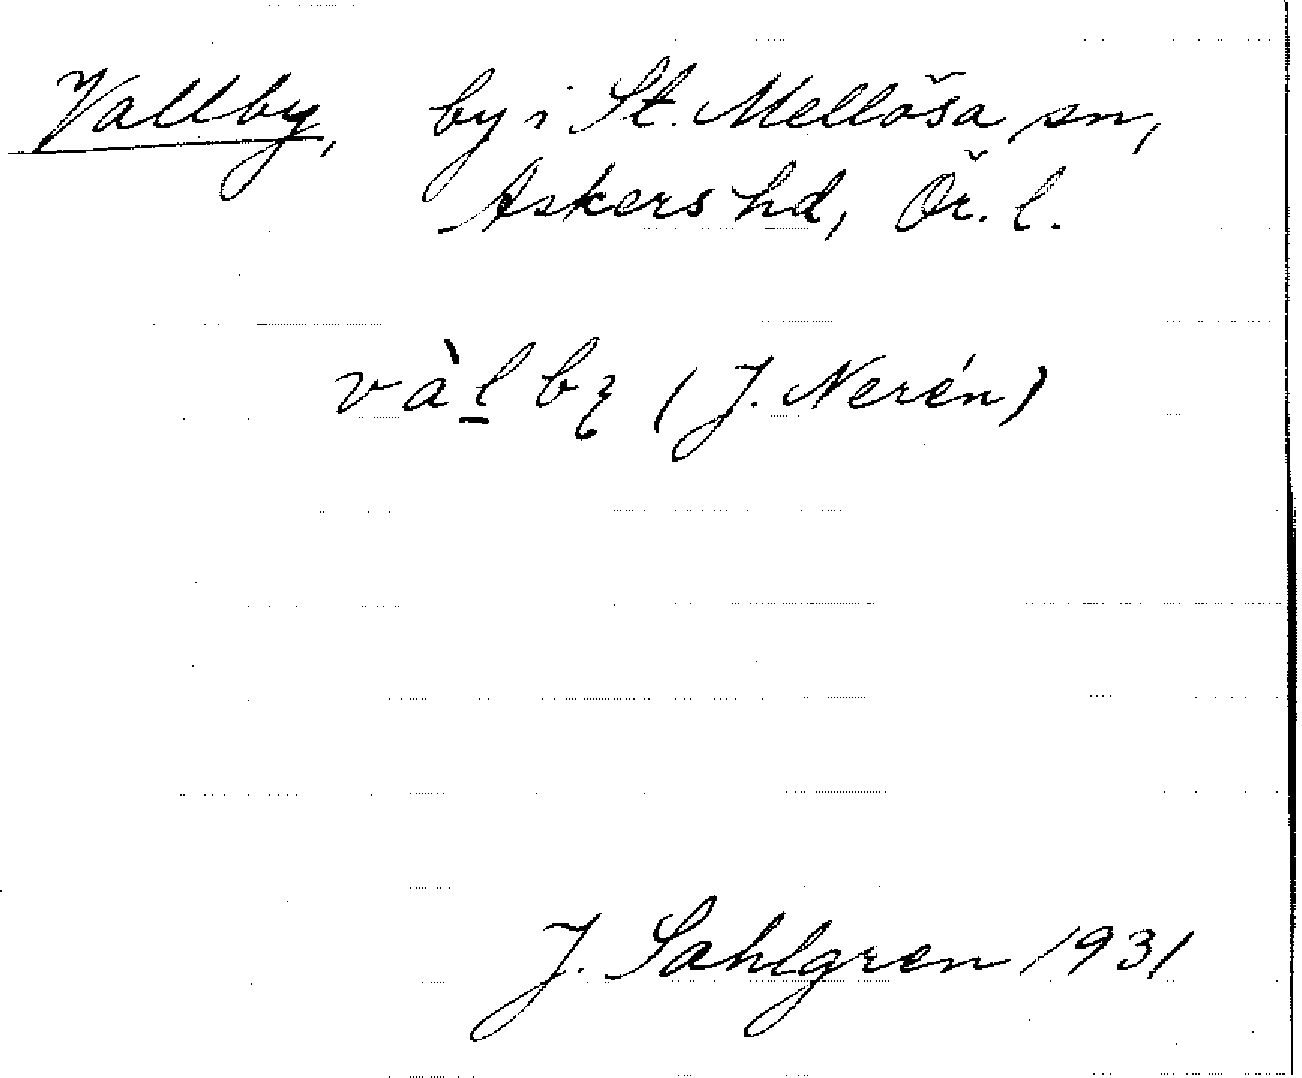 Vallby, by i St. Mellösa sn,
Askers hd, Ör. l.
vàl̲by (J. Nerén)
J. Sahlgren 1931